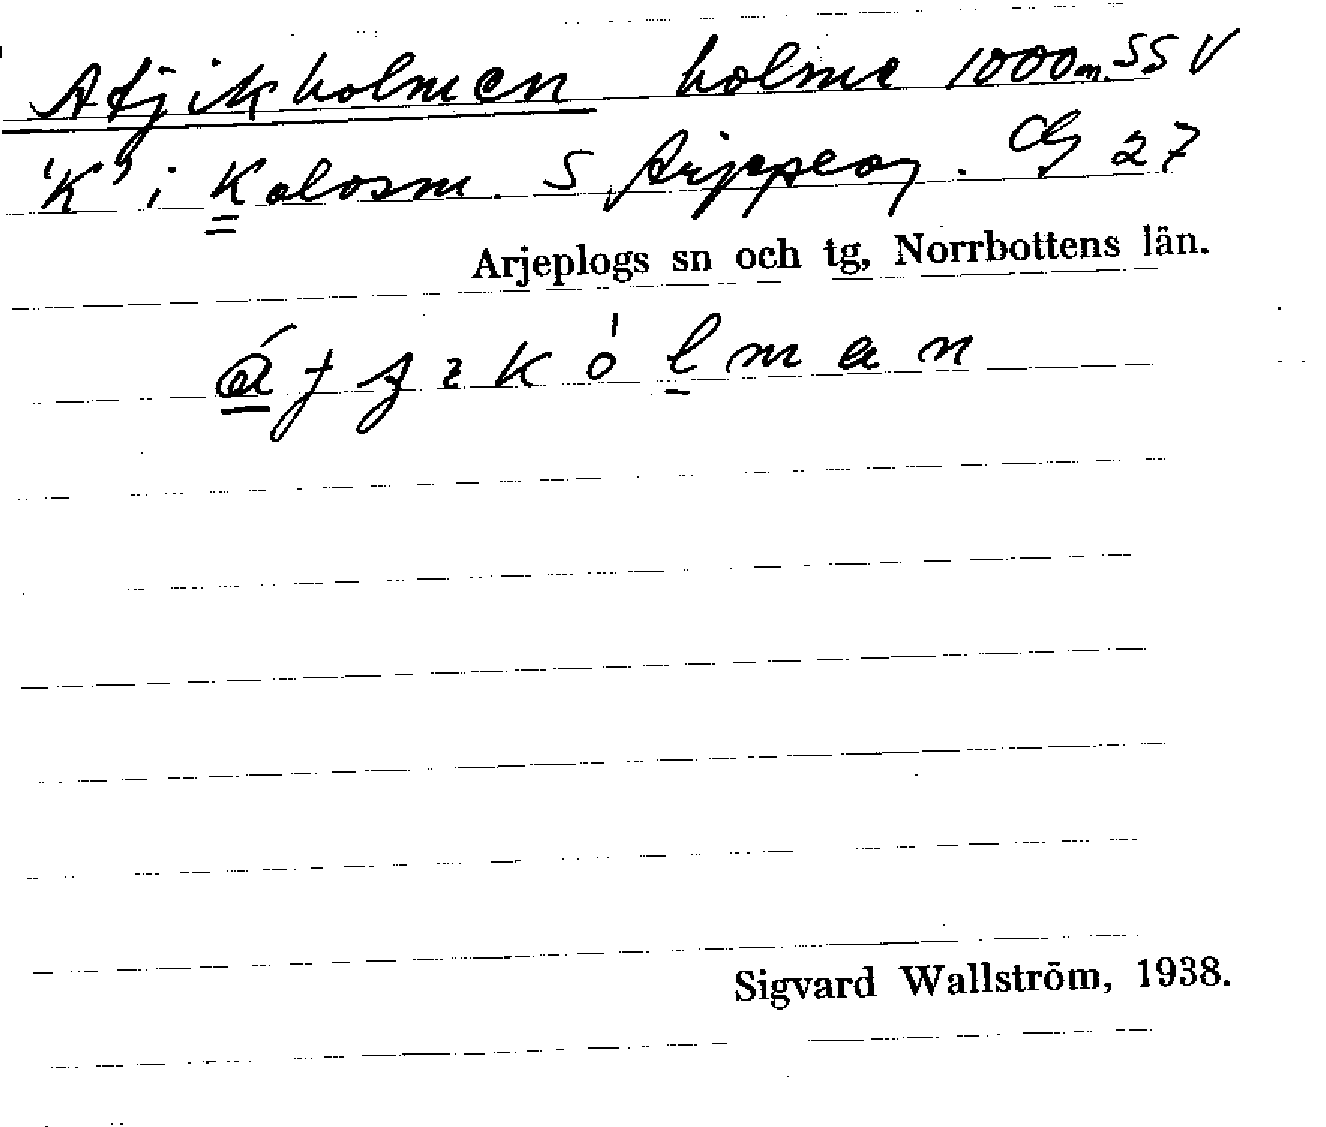 Atjikholmen holme 1000 m. SSV
"K" i Kalasm. S Arjeplog. 27
Arjeplogs sn och tg, Norrbottens län.
Sigvard Wallström, 1938.